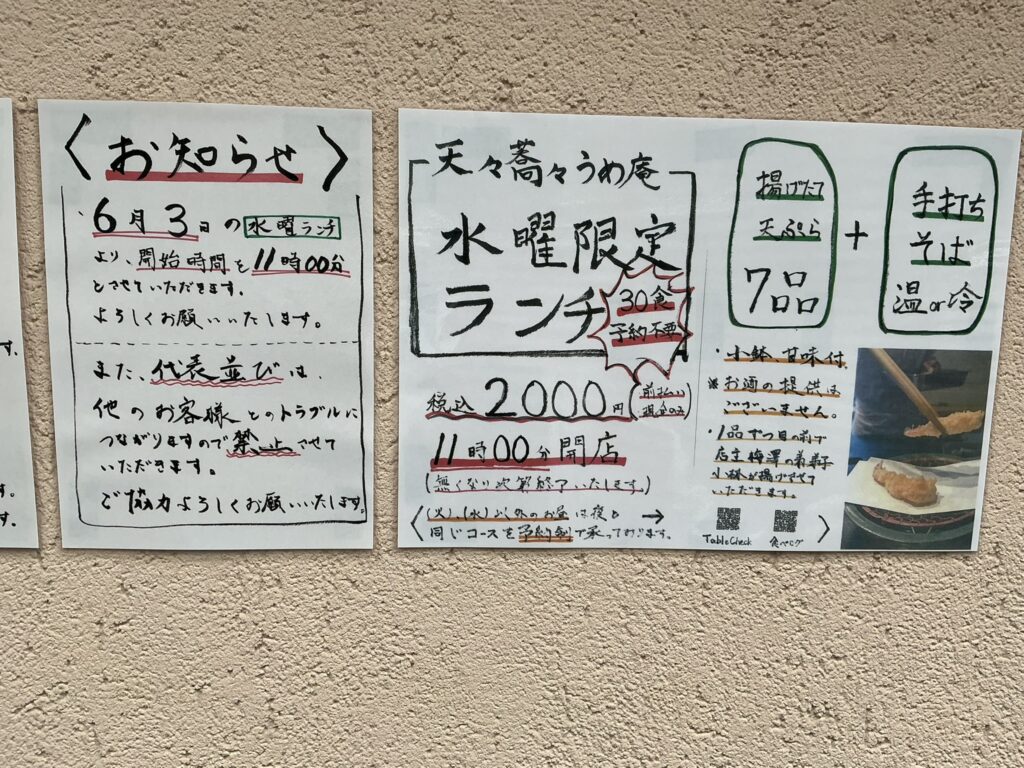 す。
す。
す。
〈お知らせ〉
6月3日の水曜ランチ
より、開始時間を11時00分
とさせていただきます。
よろしくお願いいたします。
また、代表並びは、
他のお客様とのトラブルに
つながりますので禁止させて
いただきます。
ご協力よろしくお願いいたします。
天々蕎々うめ庵
水曜限定
ランチ
30食
予約不要
税込2000円(前払い
現金のみ)
11時00分開店
(無くなり次第終了いたします。)
〈(火)、(水)以外のお昼は夜と →
同じコースを予約制で承っております。
揚げたて
天ぷら
7品
+
手打ち
そば
温or冷
・小鉢、甘味付
※お酒の提供は
ございません。
・1品ずつ目の前で
店主梅澤の弟子
小林が揚げさせて
いただきます。
TableCheck 食べログ 〉